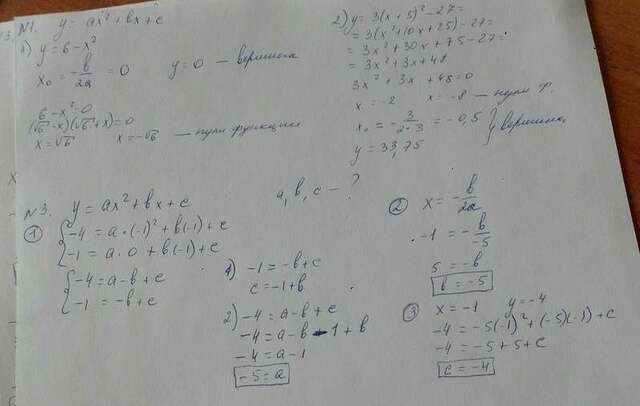 №1. y = ax² + bx + c
1) y = 6 - x²
x₀ = -b/2a = 0   y = 0 — вершина
6 - x² = 0
(√6 - x)(√6 + x) = 0
x = √6   x = -√6 — нули функции
2) y = 3(x + 5)² - 27 =
= 3(x² + 10x + 25) - 27 =
= 3x² + 30x + 75 - 27 =
= 3x² + 3x + 48
3x² + 3x + 48 = 0
x = -2   x = -8 — нули ф.
x₀ = -3/2·3 = -0,5 } вершина
y = 33,75
№3. y = ax² + bx + c   a, b, c — ?
① { -4 = a·(-1)² + b(-1) + c
-1 = a·0 + b(-1) + c
{ -4 = a - b + c
-1 = -b + c
1) -1 = -b + c
c = -1 + b
2) -4 = a - b + c
-4 = a - b - 1 + b
-4 = a - 1
-5 = a
② x = -b/2a
-1 = -b/-5
5 = -b
b = -5
③ x = -1   y = -4
-4 = -5(-1)² + (-5)(-1) + c
-4 = -5 + 5 + c
c = -4